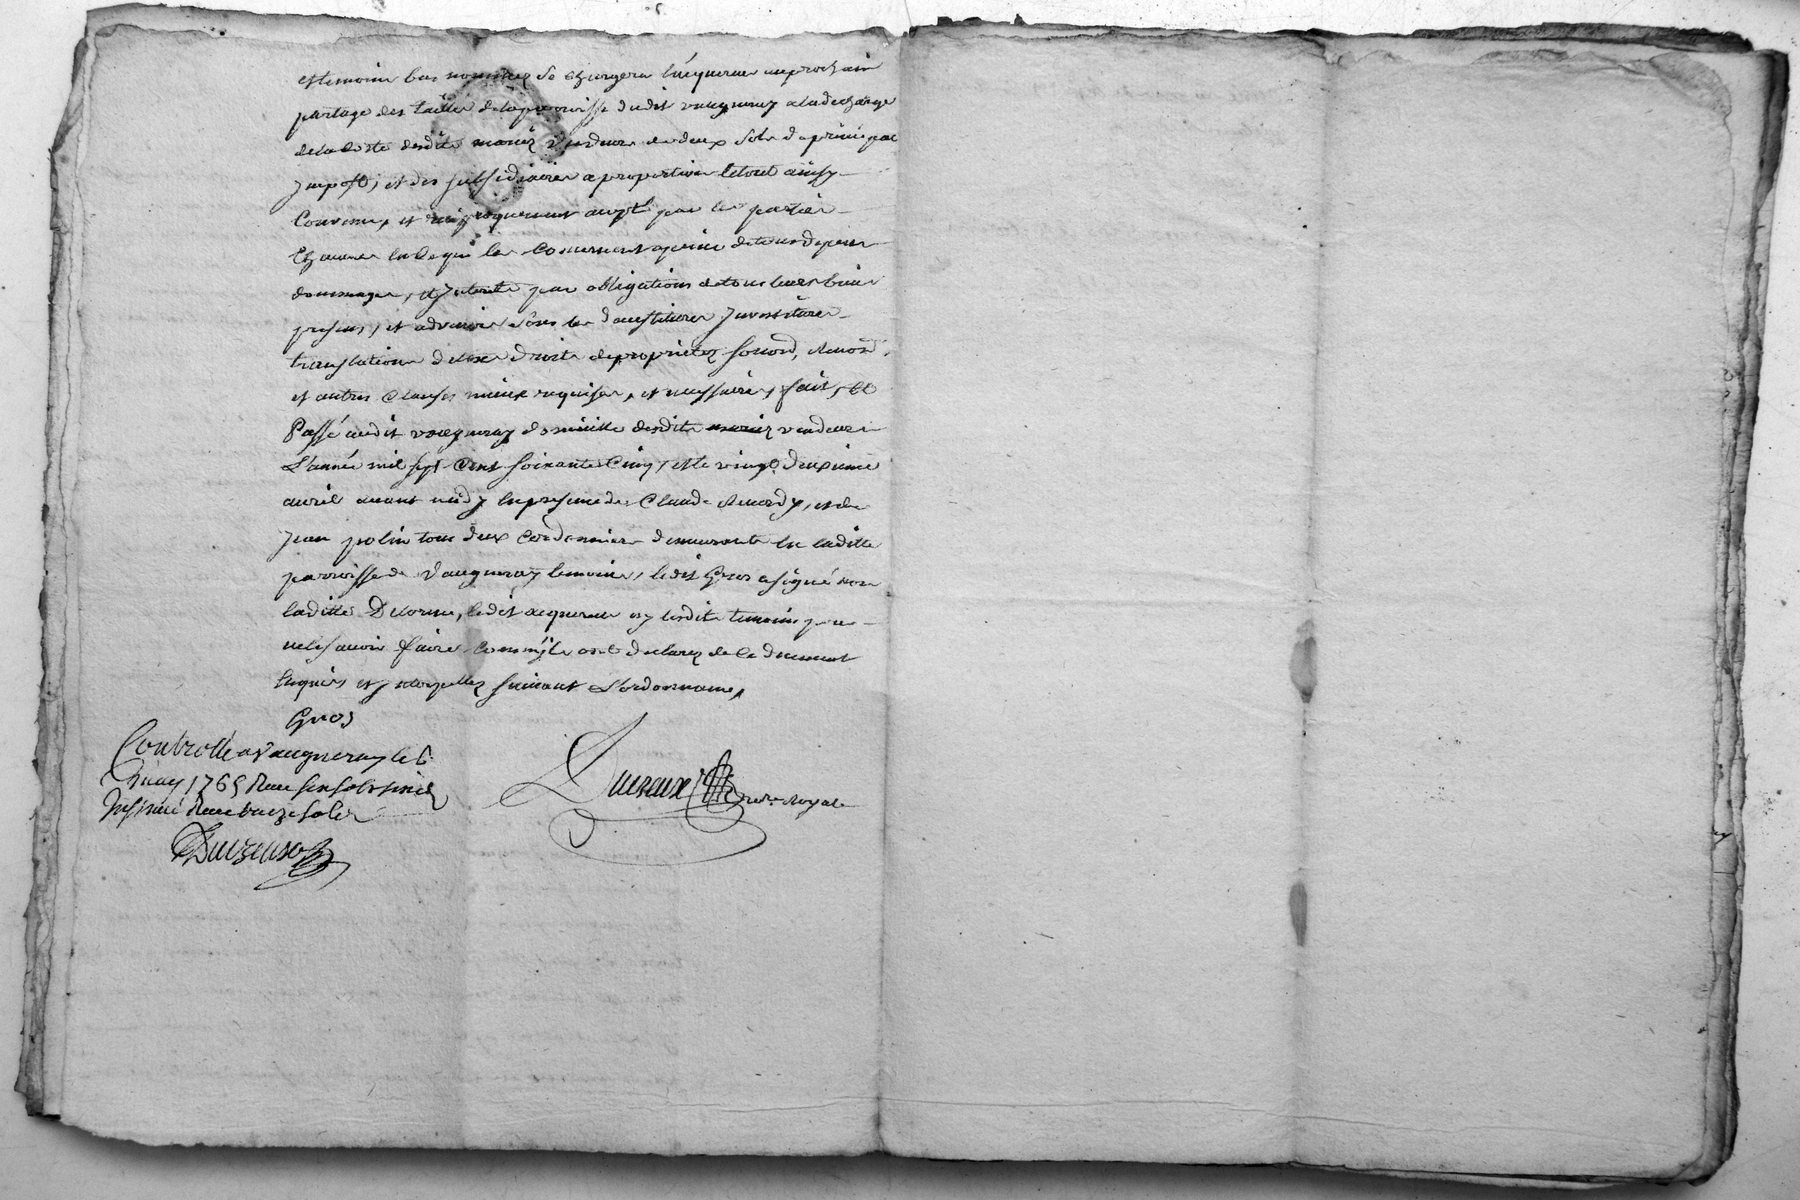 et temoins bas nommez se chargera l'acquereur au prochain
partage des tailles de la parroisse dudit vaugneray a la decharge
de la cotte desdits mariez vendeurs de deux sols de principal
jmpost, et des subsidiaires a proportion le tout ainsy
Convenu, et reciproquement accepté par les parties
Chacunes en ce qui les Concernent a peine de tous depens
dommages, et jnterets par obligations de tous leurs biens
presens, et advenir sous les devestitures jnvestitures
translations de tous droits de proprietez
et autres Clauses mieux requises, et necessaires, fait, et
Passé audit vaugneray domicille desdits mariez vendeurs
L'année mil sept Cent soixante Cinq, et le vingt deuxieme
avril avant midy en presence de Claude et de
jean tous deux Cordonniers demeurants en laditte
parroisse de Vaugneray temoins, ledit Gros a signé non
laditte Delorme, ledit acquereur ny lesdits temoins pour
ne le savoir faire Comm'jls ont declarez de Ce deument
Enquis et jnterpellez suivant L'ordonnance,
Gros
Controllé a Vaugneray le 6
may 1765 Reçu
jnsinué Reçu sols
Duvreux Nore Royal